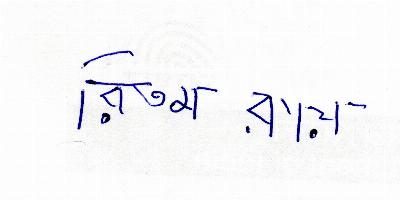 রিতম রায়